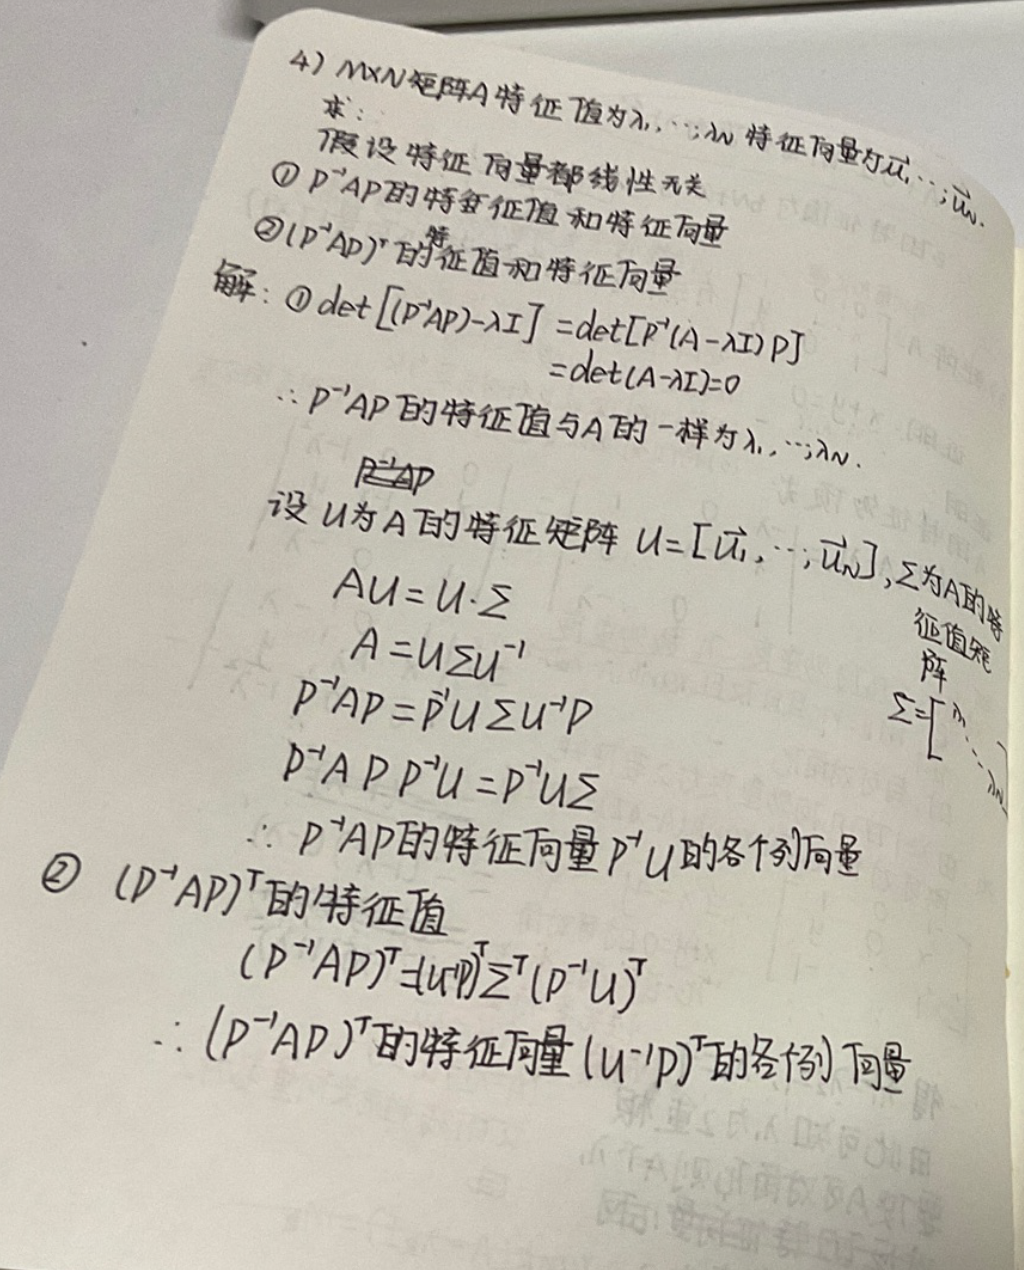 4) M×N矩阵A特征值为λ₁,…;λN 特征向量为u⃗₁,…;u⃗N.
求:
假设特征向量都线性无关
① P⁻¹AP的特征值和特征向量
②(P⁻¹AP)ᵀ的特征值和特征向量
解: ① det[(P⁻¹AP)-λI] =det[P⁻¹(A-λI)P]
=det(A-λI)=0
∴ P⁻¹AP的特征值与A的一样为λ₁,…;λN.
P⁻¹AP
设U为A的特征矩阵 U=[u⃗₁,…;u⃗N],Σ为A的特
征值矩
阵
Σ=[λ₁…λN]
AU=U·Σ
A=UΣU⁻¹
P⁻¹AP=P⁻¹UΣU⁻¹P
P⁻¹APP⁻¹U=P⁻¹UΣ
∴ P⁻¹AP的特征向量P⁻¹U的各个列向量
② (P⁻¹AP)ᵀ的特征值
(P⁻¹AP)ᵀ=(U⁻¹P)ᵀΣᵀ(P⁻¹U)ᵀ
∴ (P⁻¹AP)ᵀ的特征向量(U⁻¹P)ᵀ的各个列向量